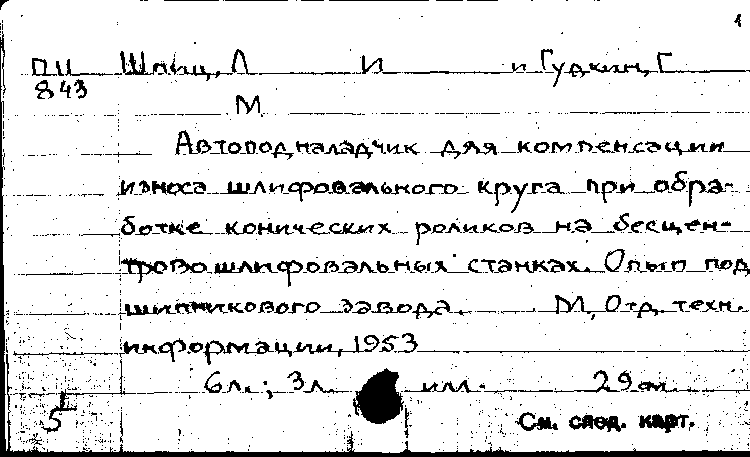 1
ПИ Шпиц, Л И и Гудкин, Г
843
М
Автоподналадчик для компенсации
износа шлифовального круга при обра-
ботке конических роликов на бесцен-
тровошлифовальных станках. Опыт под
шипникового завода. М, Отд. техн.
информации, 1953
6л.; 3л. илл. 29 см.
5
См. след. карт.